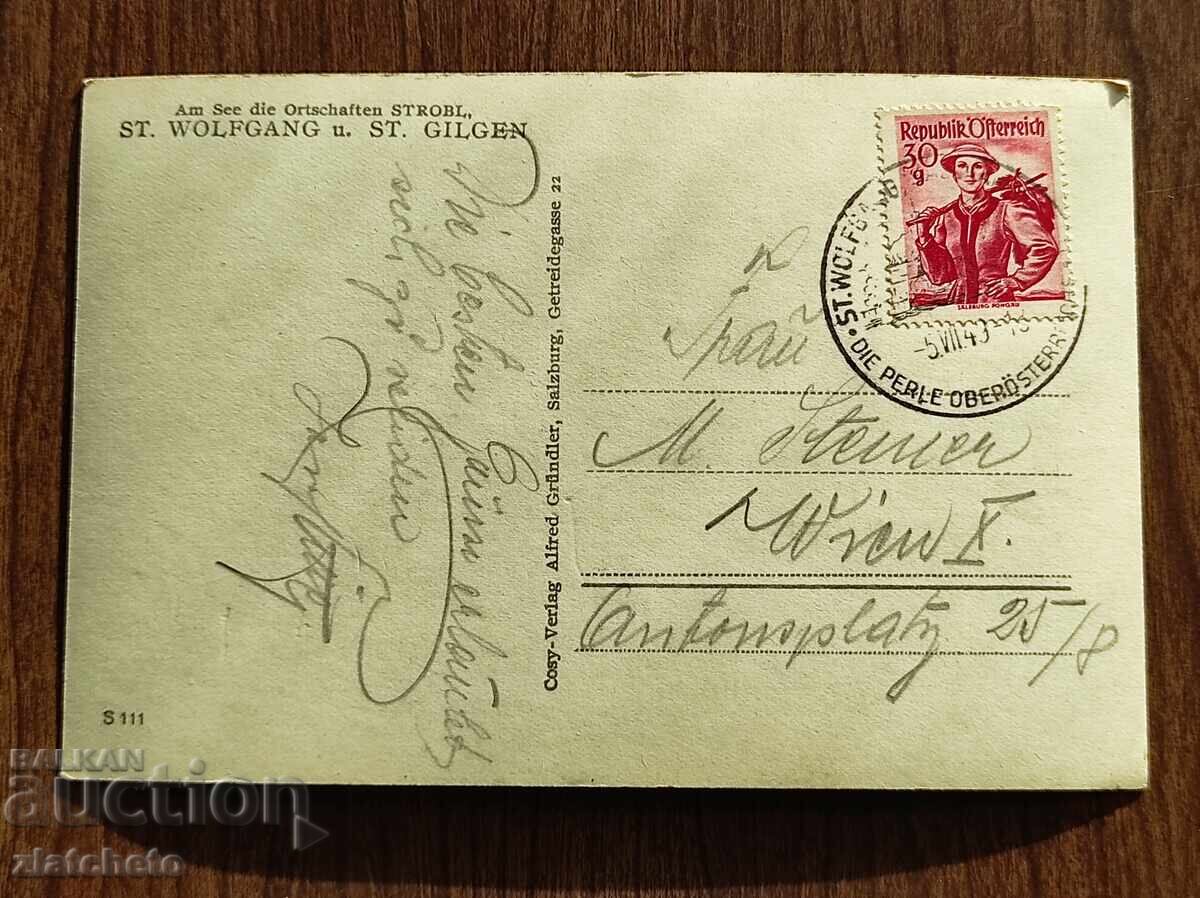 Am See die Ortschaften STROBL,
ST. WOLFGANG u. ST. GILGEN
Die besten Grüße erlaubt
sich zu senden
Cosy-Verlag Alfred Gründler, Salzburg, Getreidegasse 22
Republik Österreich
30
g
SALZBURG PONGAU
ST. WOLFG
-5.VII.49
DIE PERLE OBERÖSTERR
Frau
M. Steiner
Wien X.
Antonsplatz 25/8
S 111
BALKAN
auction
zlatcheto